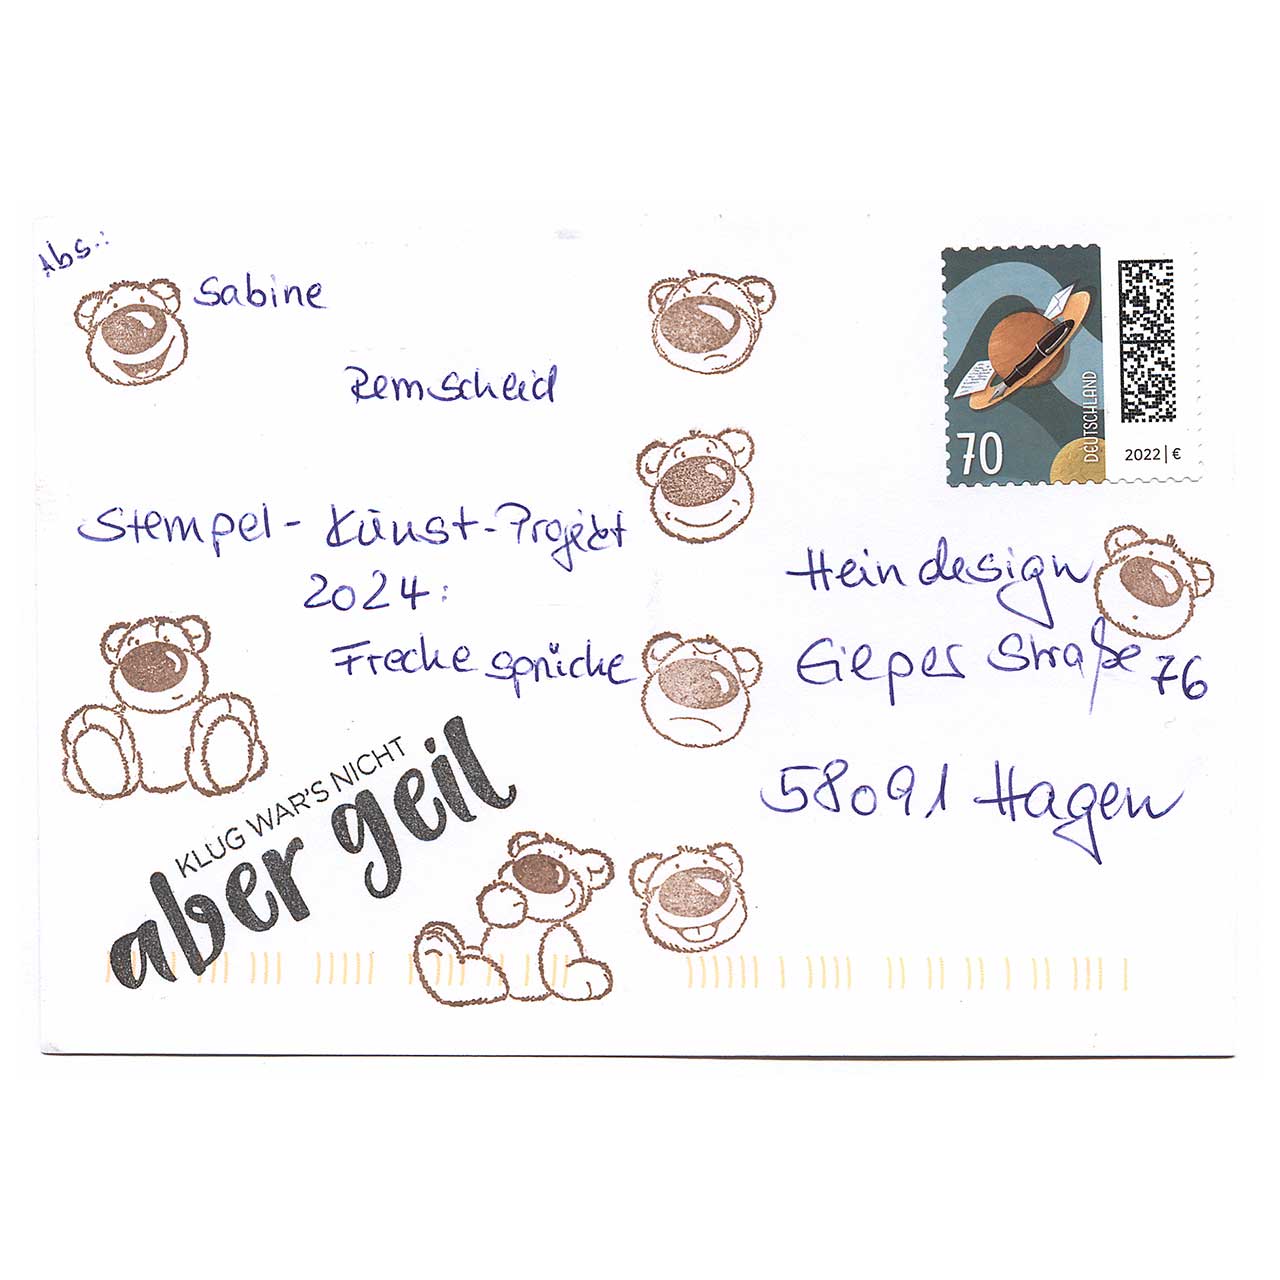 Abs.:
Sabine
Remscheid
Stempel-Kunst-Projekt
2024:
Freche Sprüche
KLUG WAR'S NICHT
aber geil
70
DEUTSCHLAND
2022 | €
Heindesign
Eieper Straße 76
58091 Hagen